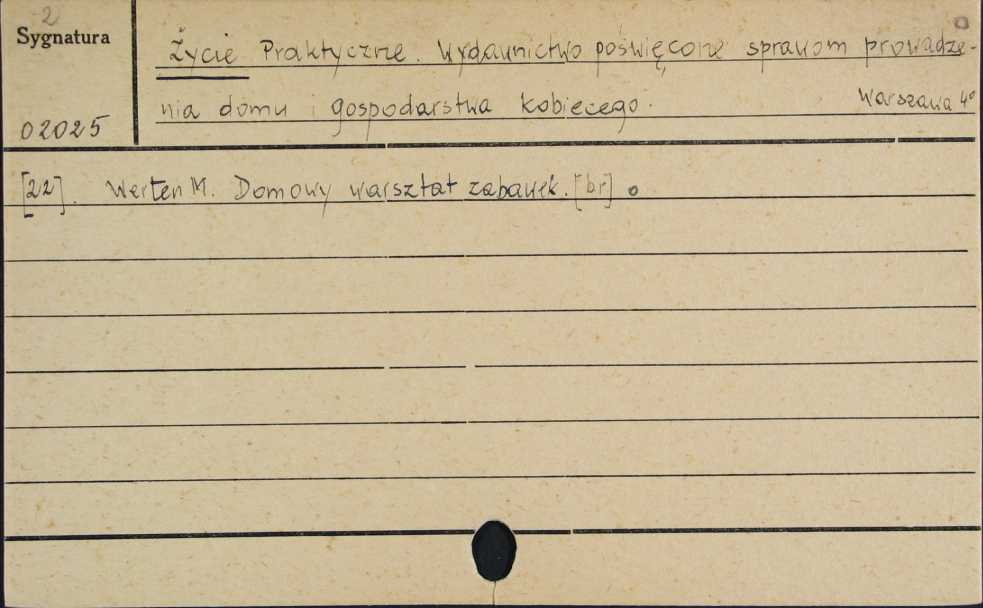 2
Sygnatura
02025
Życie Praktyczne. Wydawnictwo poświęcone sprawom prowadze-
nia domu i gospodarstwa kobiecego. Warszawa 4°
[22]. Werten M. Domowy warsztat zabawek. [br]